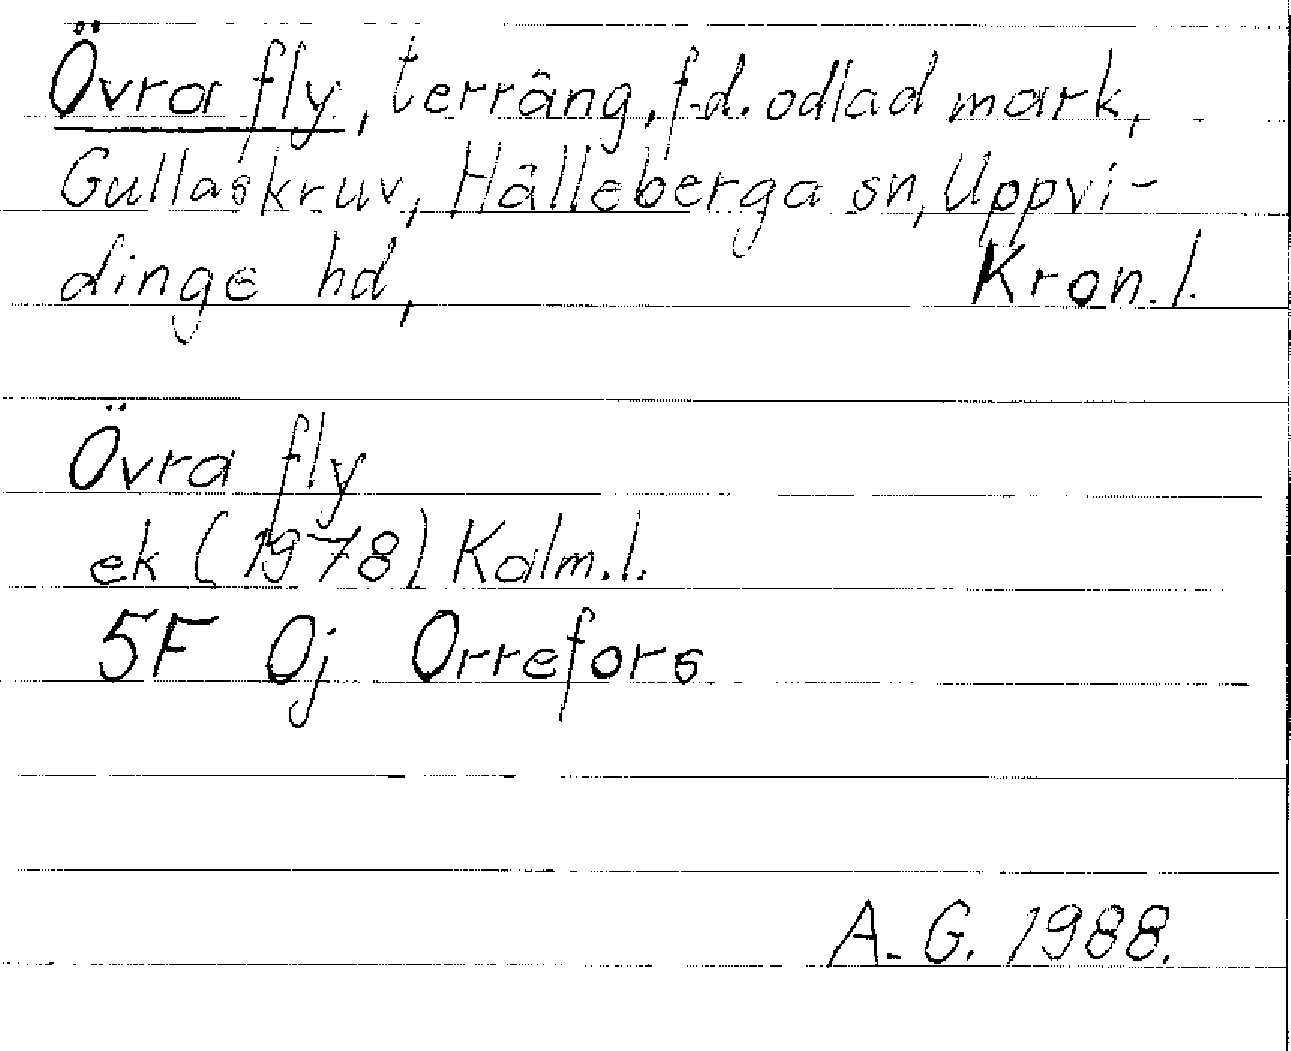 Övra fly, terräng, f.d. odlad mark,
Gullaskruv, Hälleberga sn, Uppvi-
dinge hd, Kron.l.
Övra fly
ek (1978) Kalm.l.
5F 0j Orrefors
A.G. 1988.